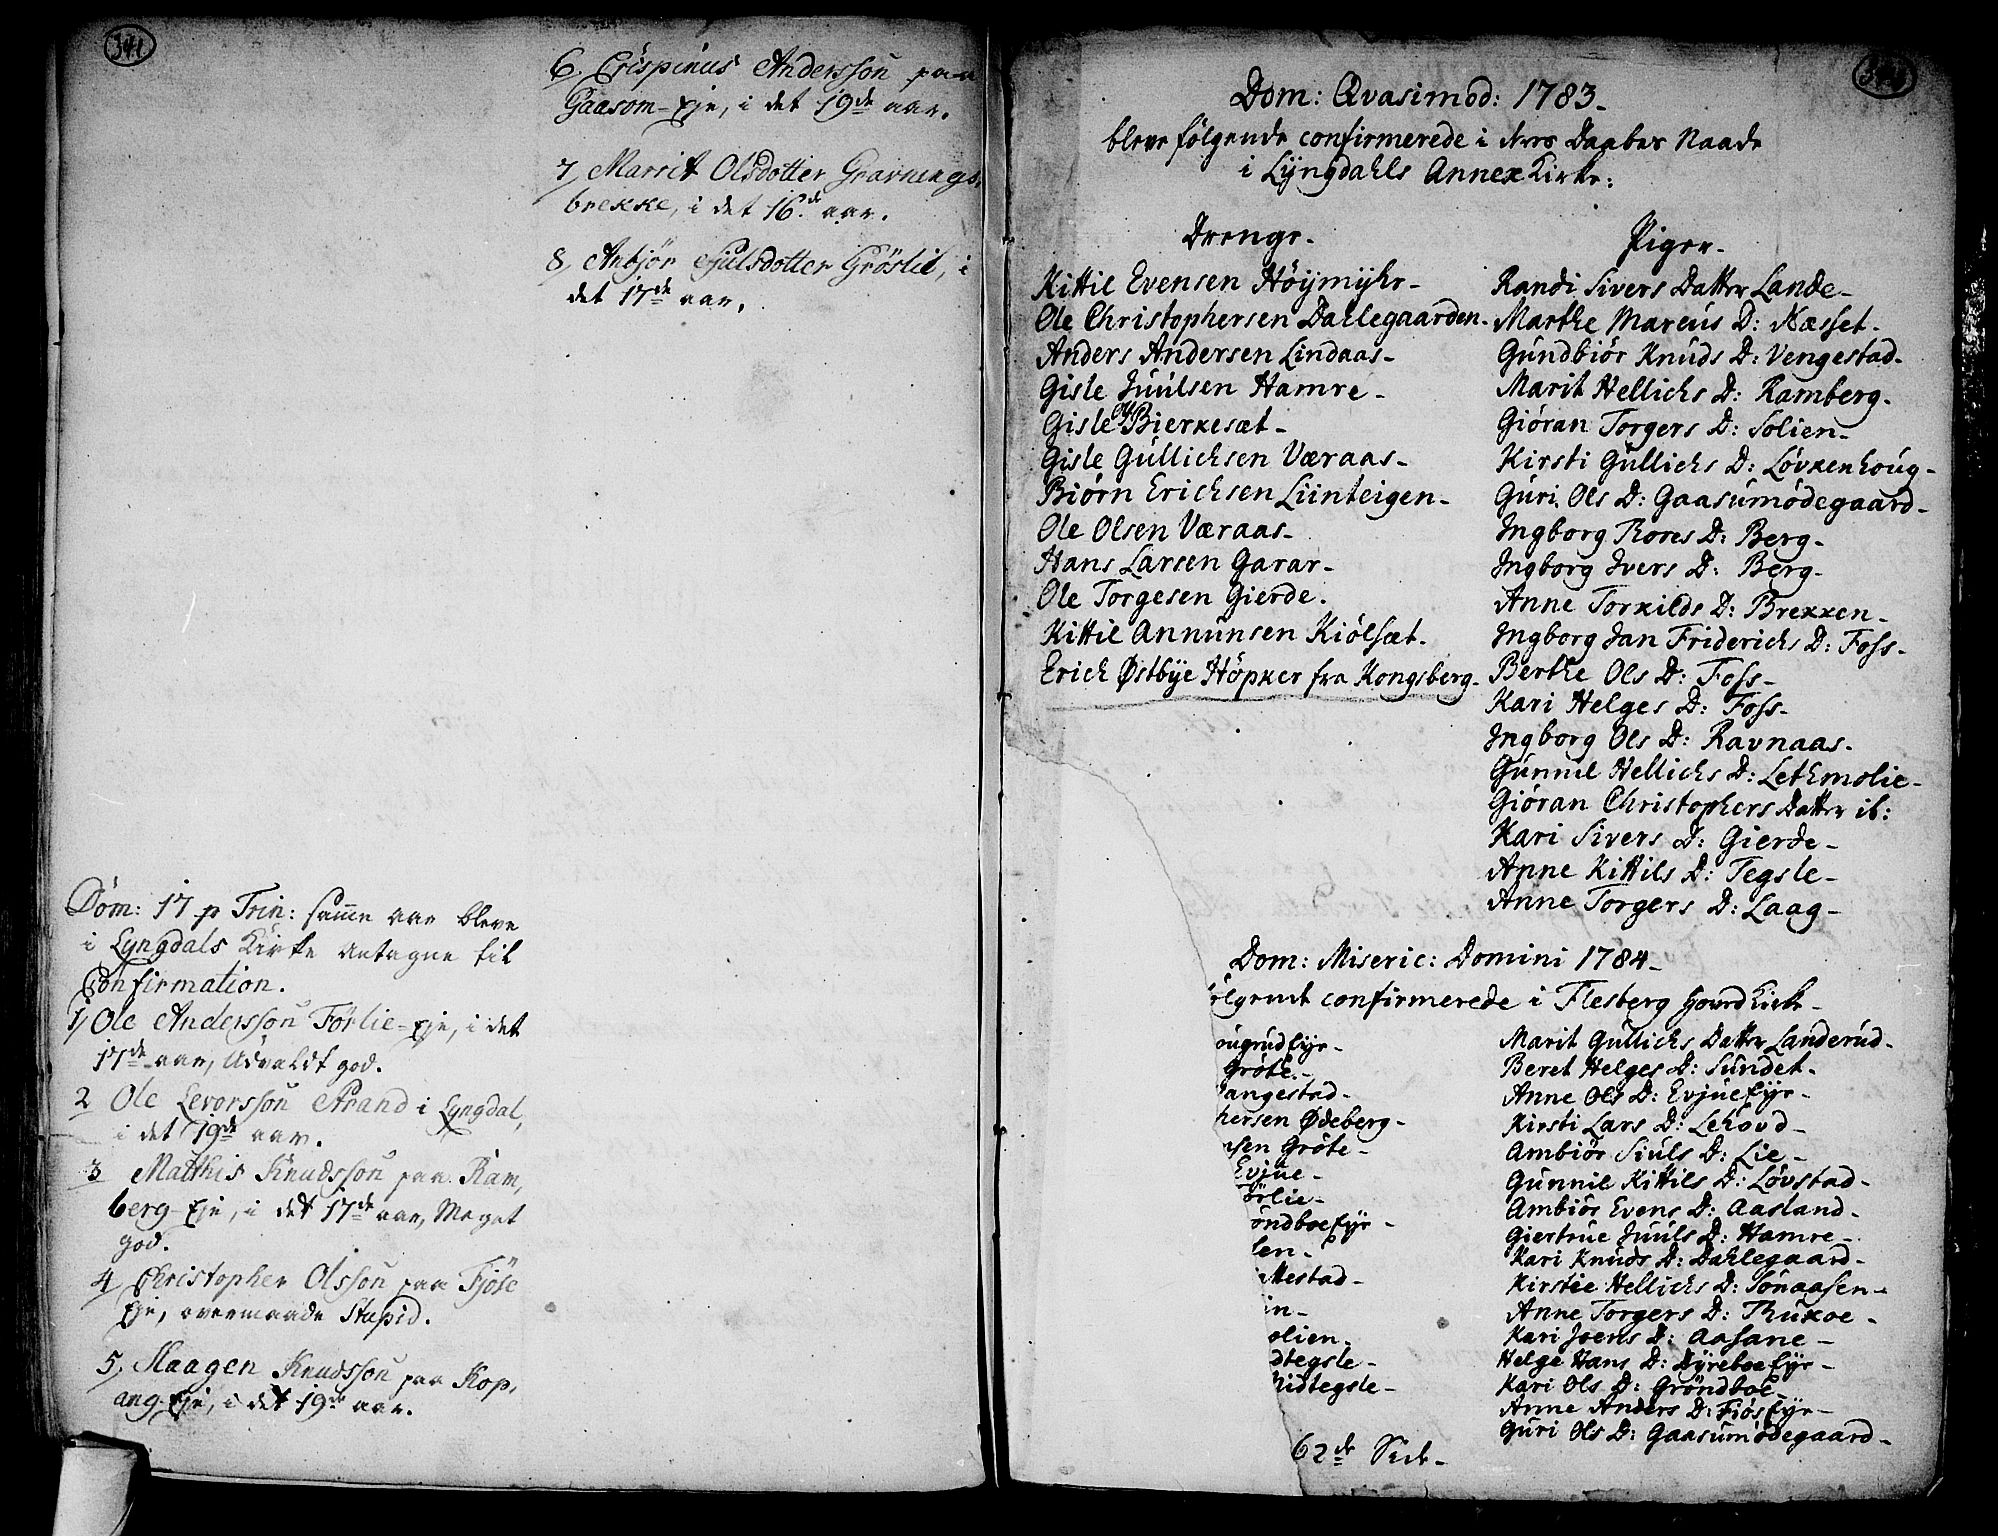 341
Dom: 17 p Trin: samme aar bleve
i Lyngdals Kirke antagne til
Confirmation.
1, Ole Andersson Förlie-Eje, i det
17de aar, Udvaldt god.
2 Ole Levorsson Strand i Lyngdal,
i det 19de aar.
3 Matthis Knudsson paa Ram,
berg-Eje, i det 17de aar, Meget
god.
4, Christopher Olsson paa Fjöse
Eje, overmaade Stupid.
5, Haagen Knudsson paa Kop,
ang-Eje, i det 19de aar.
6, Crispinus Andersson paa
Gaasom-Eje, i det 19de aar.
7, Marrit Olsdotter Gravnings,
brekke, i det 16de aar.
8, Anbjör Sjulsdotter Gröslie, i
det 17de aar.
Dom: Qvasimod: 1783.
bleve følgende confirmerede i deres Daabes Naade
i Lÿngdahls Annex Kirke:
Drenge.
Kittil Evensen Höÿmÿhr-
Ole Christophersen Dahlegaarden-
Anders Andersen Lindaas-
Gisle Juulsen Hamre-
Gisle Ols: Bierkesæt-
Gisle Gullichsen Væraas-
Biörn Erichsen Liinteigen-
Ole Olsen Væraas-
Hans Larsen Garar-
Ole Torgesen Gierde.
Kittil Annunsen Kiölsæt.
Erich Østbÿe Höpker fra Kongsberg-
Piger-
Randi Sivers Datter Lande-
Marthe Marcus D: Næsset-
Gundbiör Knuds D: Vengestad-
Marit Hellichs D: Ramberg-
Giöran Torgers D: Solien-
Kirsti Gullichs D: Lövkenhoug-
Guri Ols D: Gaasumödegaard-
Ingborg Thores D: Berg-
Ingborg Ivers D: Berg-
Anne Torkilds D: Brekken-
Ingborg Jan Friderichs D: Foss-
Berthe Ols D: Foss-
Kari Helges D: Foss-
Ingborg Ols D: Ravnaas-
Gunnil Hellichs D: Lethmolie-
Giöran Christophers Datter ib:
Kari Sivers D: Gierde-
Anne Kittils D: Tegsle-
Anne Torgers D: Laag-
Dom: Miseric: Domini 1784-
ølgende confirmerede i Flesberg Hoved Kirke-
ougrudeÿe-
Gröte-
angestad-
hersen Ødeberg-
nsen Gröte-
Evjue-
örlie-
öndboeeÿe-
len-
ttestad-
in-
olien-
dtegsle-
Midtegsle-
Marit Gullichs Datter Landerud-
Beret Helges D: Sundet-
Anne Ols D: Evjueeÿe-
Kirsti Lars D: Lehovd-
Ambiör Siuls D: Lie-
Gunnil Kittils D: Lövstad-
Ambiör Evens D: Aasland-
Giertrue Juuls D: Hamre-
Kari Knuds D: Dahlegaard-
Kirstie Hellichs D: Sönaasen-
Anne Torgers D: Thukoe-
Kari Joens D: Aasane-
Helge Hans D: Dÿreboeeÿe-
Kari Ols D: Gröndboe-
Anne Anders D: Fiöseÿe-
Guri Ols D: Gaasumödegaard-
62de Side-